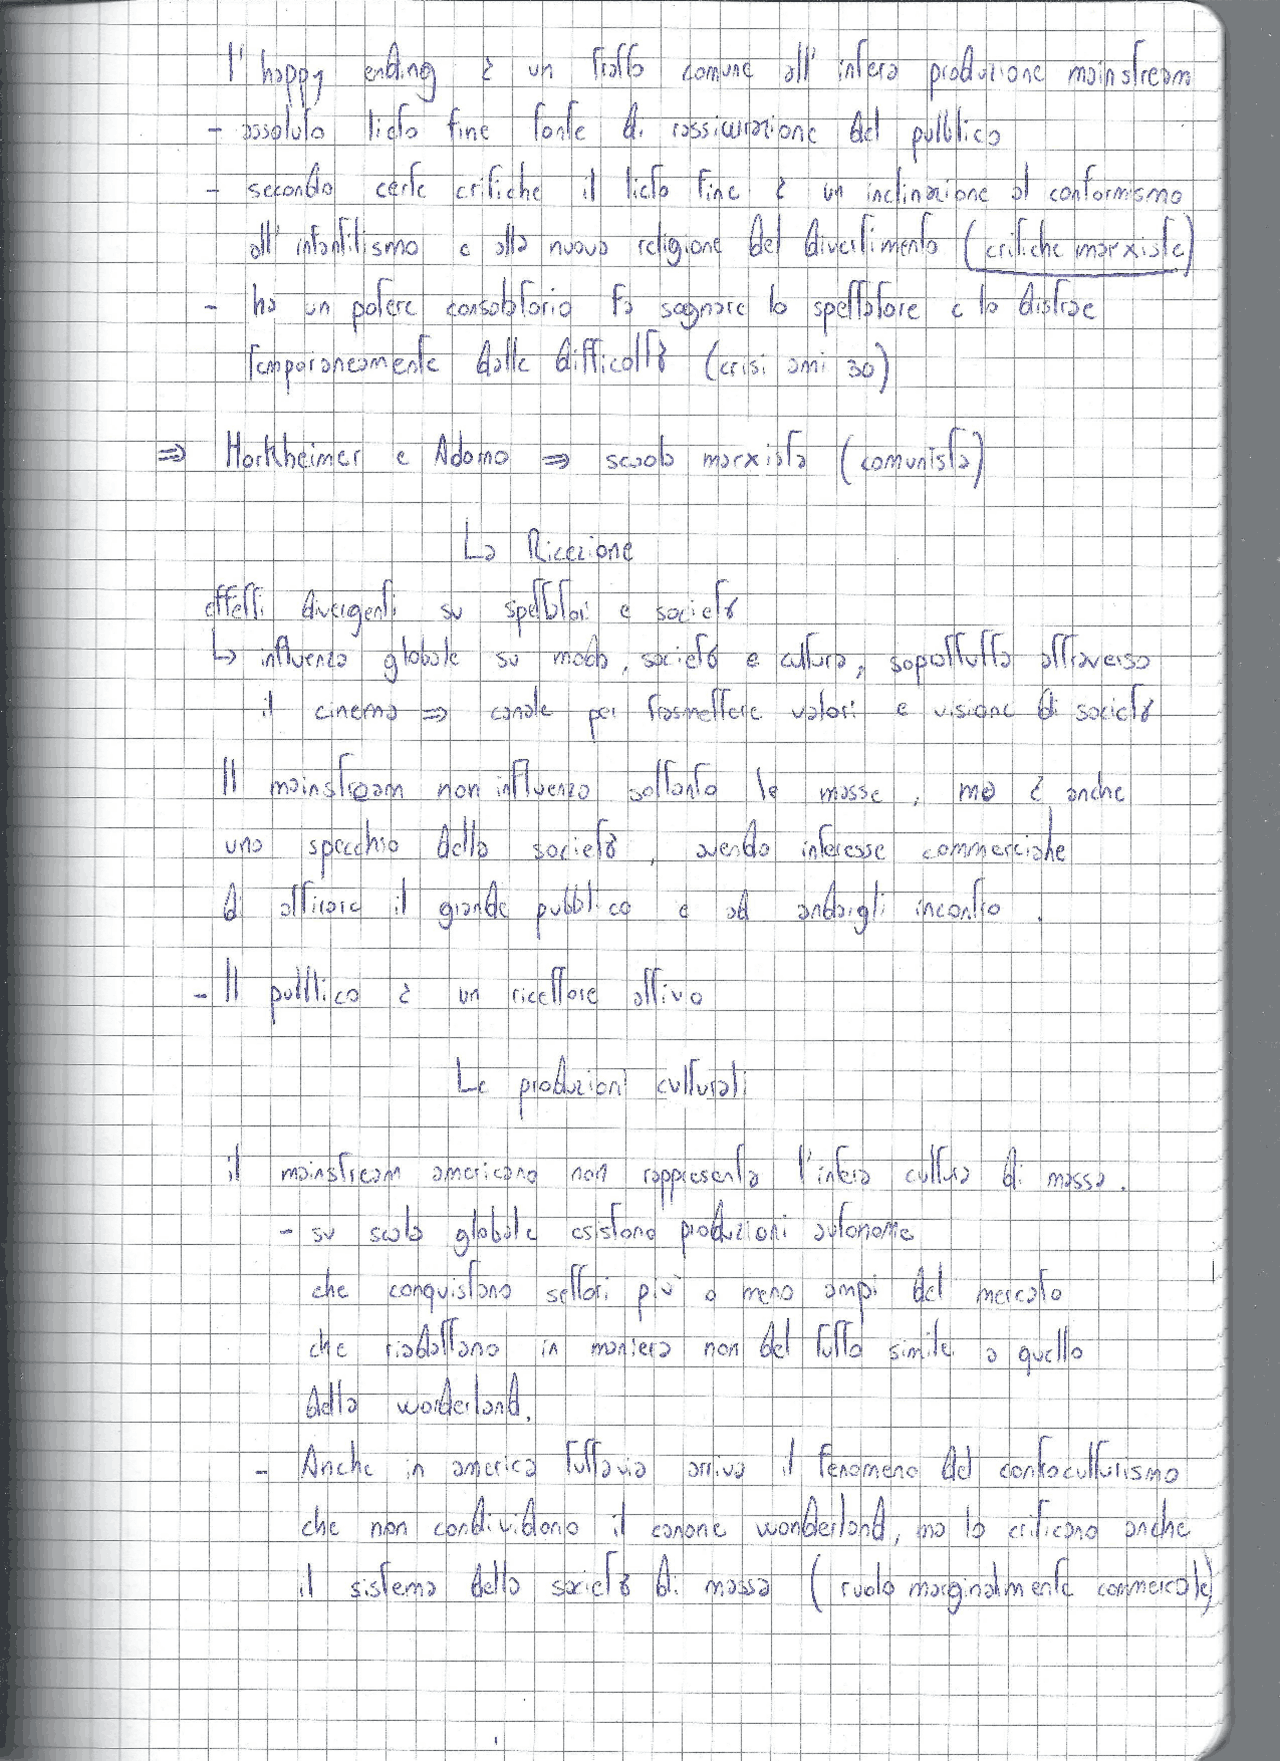 l'happy ending è un tratto comune all'intera produzione mainstream
- assoluto lieto fine fonte di rassicurazione del pubblico
- secondo certe critiche il lieto fine è un inclinazione al conformismo
all'infantilismo e alla nuova religione del divertimento (critiche marxiste)
- ha un potere consolatorio fa sognare lo spettatore e lo distrae
temporaneamente dalle difficoltà (crisi anni 30)
⇒ Horkheimer e Adorno ⇒ scuola marxista (comunista)
La Ricezione
effetti divergenti su spettatori e società
↳ influenza globale su moda, società e cultura, soprattutto attraverso
il cinema ⇒ canale per trasmettere valori e visione di società
Il mainstream non influenza soltanto le masse, ma è anche
uno specchio della società, avendo interesse commerciale
di attirare il grande pubblico e ad andargli incontro.
- Il pubblico è un ricettore attivo
Le produzioni culturali
il mainstream americano non rappresenta l'intera cultura di massa.
- su scala globale esistono produzioni autonome
che conquistano settori più o meno ampi del mercato
che riadattano in maniera non del tutto simile a quello
della wonderland.
- Anche in america tuttavia arriva il fenomeno del controculturismo
che non condividono il canone wonderland, ma lo criticano anche
il sistema della società di massa (ruolo marginalmente commerciale)